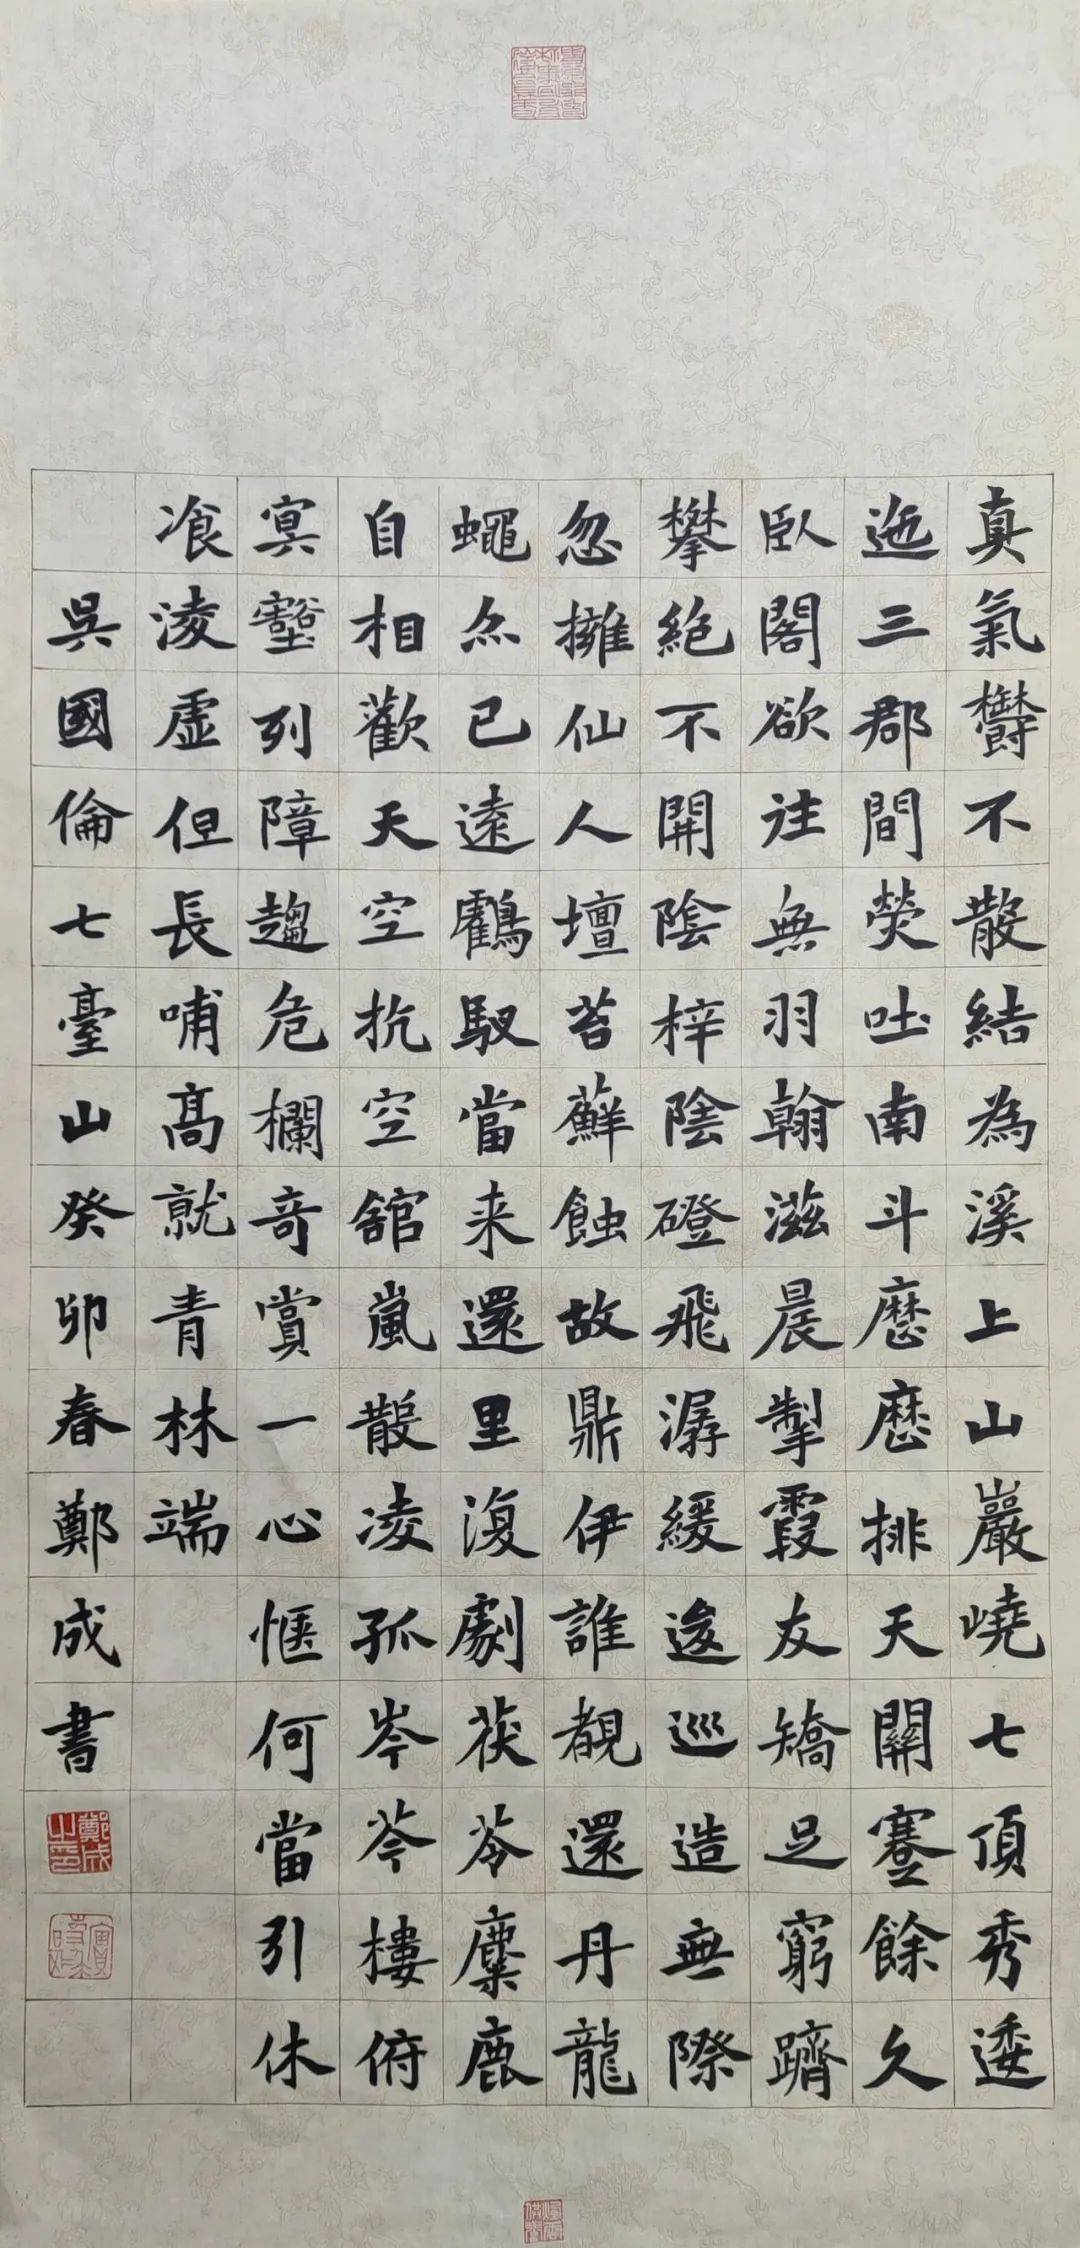 真氣欝不散結為溪上山巖嶢七頂秀逶
迤三郡間熒吐南斗磨磨排天關蹇餘久
臥閣欲注無羽翰滋晨掣霞友矯足窮躋
攀絶不開陰梓陰磴飛潺緩逡巡造無際
忽擁仙人壇苔蘚蝕故鼎伊誰覩還丹龍
蠅亦已遠鸖馭當来還里澓劇茯苓麋鹿
自相歡天空抗空舘嵐散凌孤岑芩樓俯
㝠壑列障趨危欄奇賞一心愜何當引休
飡淩虛但長哺高就青林端
吳國倫七臺山癸卯春鄭成書
鄭成之印